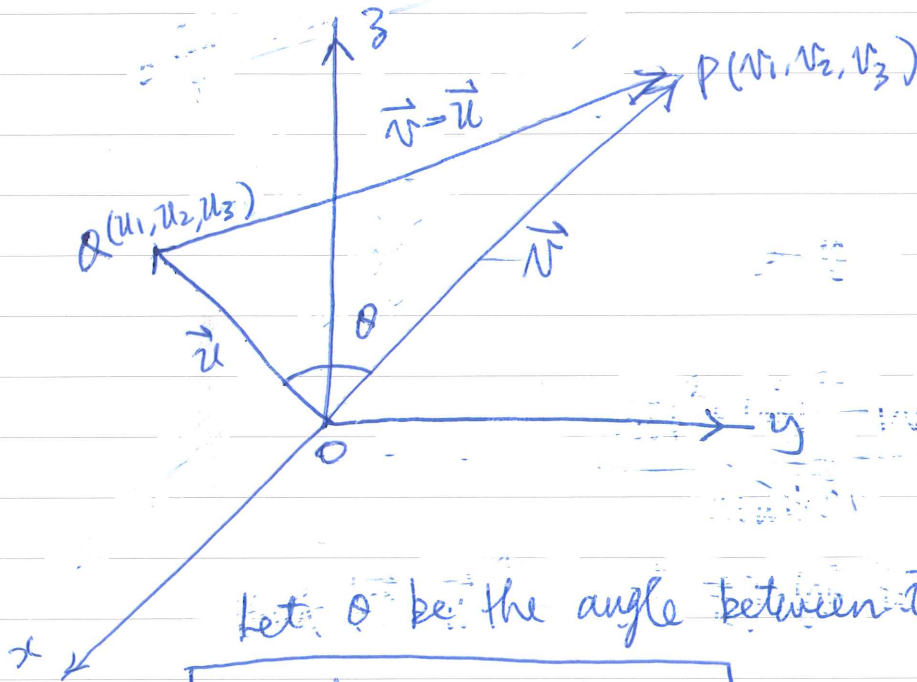 z
P(v₁, v₂, v₃)
v⃗-u⃗
Q(u₁, u₂, u₃)
v⃗
θ
u⃗
y
O
Let θ be the angle between
x